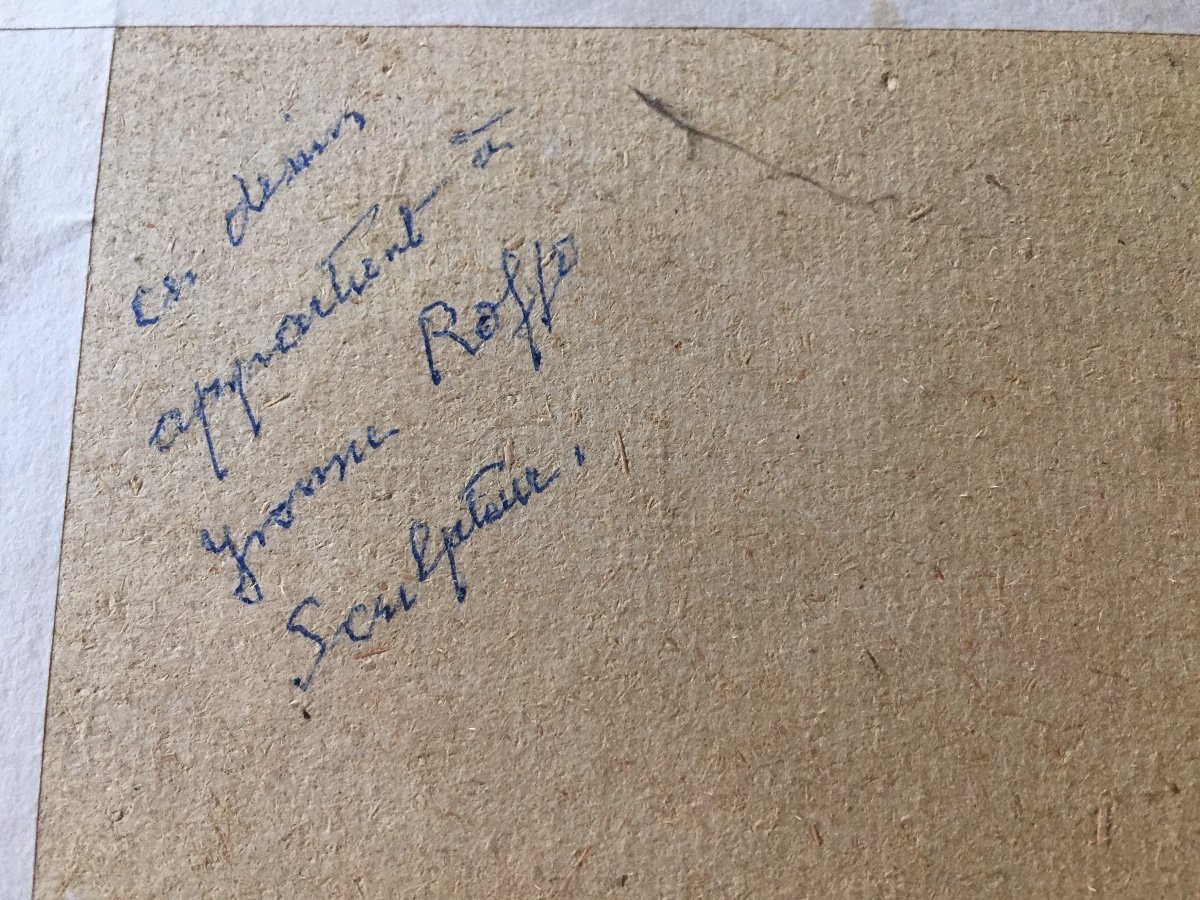 ces desins
appartient à
yvonne Roffo
Sculpteur.